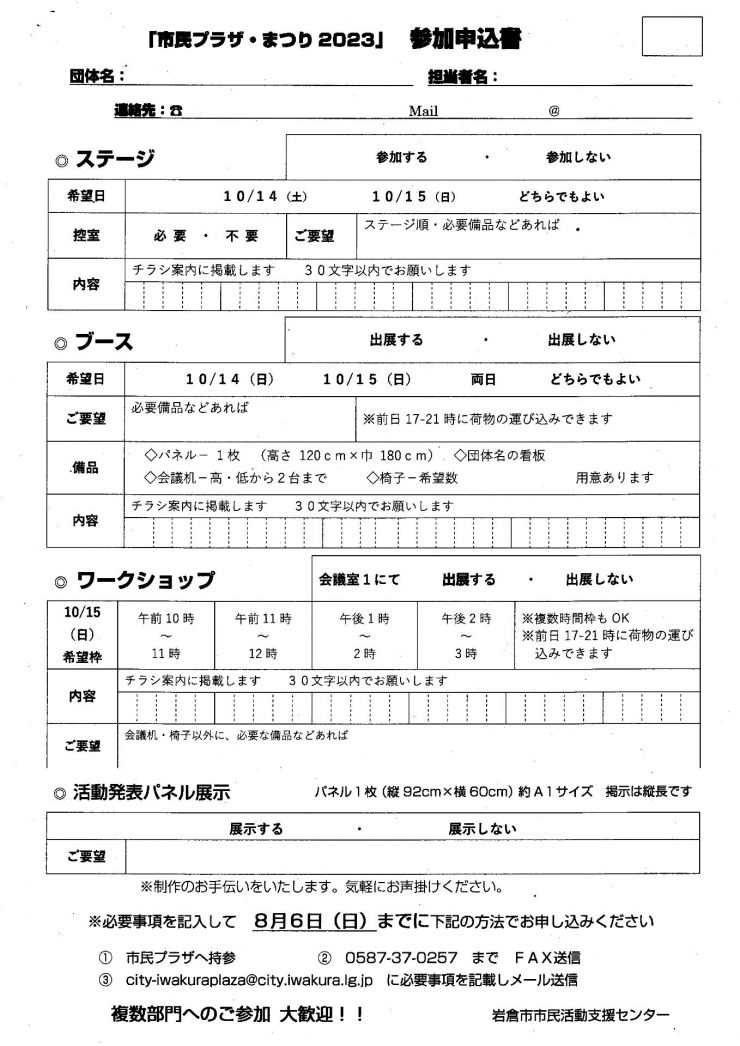 「市民プラザ・まつり2023」 参加申込書
団体名： 担当者名：
連絡先：☎ Mail @
◎ ステージ 参加する ・ 参加しない
希望日 10/14（土） 10/15（日） どちらでもよい
控室 必要 ・ 不要 ご要望 ステージ順・必要備品などあれば
内容 チラシ案内に掲載します 30文字以内でお願いします
◎ ブース 出展する ・ 出展しない
希望日 10/14（日） 10/15（日） 両日 どちらでもよい
ご要望 必要備品などあれば ※前日17-21時に荷物の運び込みできます
備品 ◇パネル－1枚 （高さ 120cm×巾 180cm） ◇団体名の看板
◇会議机－高・低から2台まで ◇椅子－希望数 用意あります
内容 チラシ案内に掲載します 30文字以内でお願いします
◎ ワークショップ 会議室1にて 出展する ・ 出展しない
10/15（日）希望枠 午前10時～11時 午前11時～12時 午後1時～2時 午後2時～3時 ※複数時間枠もOK
※前日17-21時に荷物の運び
込みできます
内容 チラシ案内に掲載します 30文字以内でお願いします
ご要望 会議机・椅子以外に、必要な備品などあれば
◎ 活動発表パネル展示 パネル1枚（縦92cm×横60cm）約A1サイズ 掲示は縦長です
展示する ・ 展示しない
ご要望
※制作のお手伝いをいたします。気軽にお声掛けください。
※必要事項を記入して 8月6日（日）までに下記の方法でお申し込みください
① 市民プラザへ持参 ② 0587-37-0257 まで FAX送信
③ city-iwakuraplaza@city.iwakura.lg.jp に必要事項を記載しメール送信
複数部門へのご参加 大歓迎！！ 岩倉市市民活動支援センター